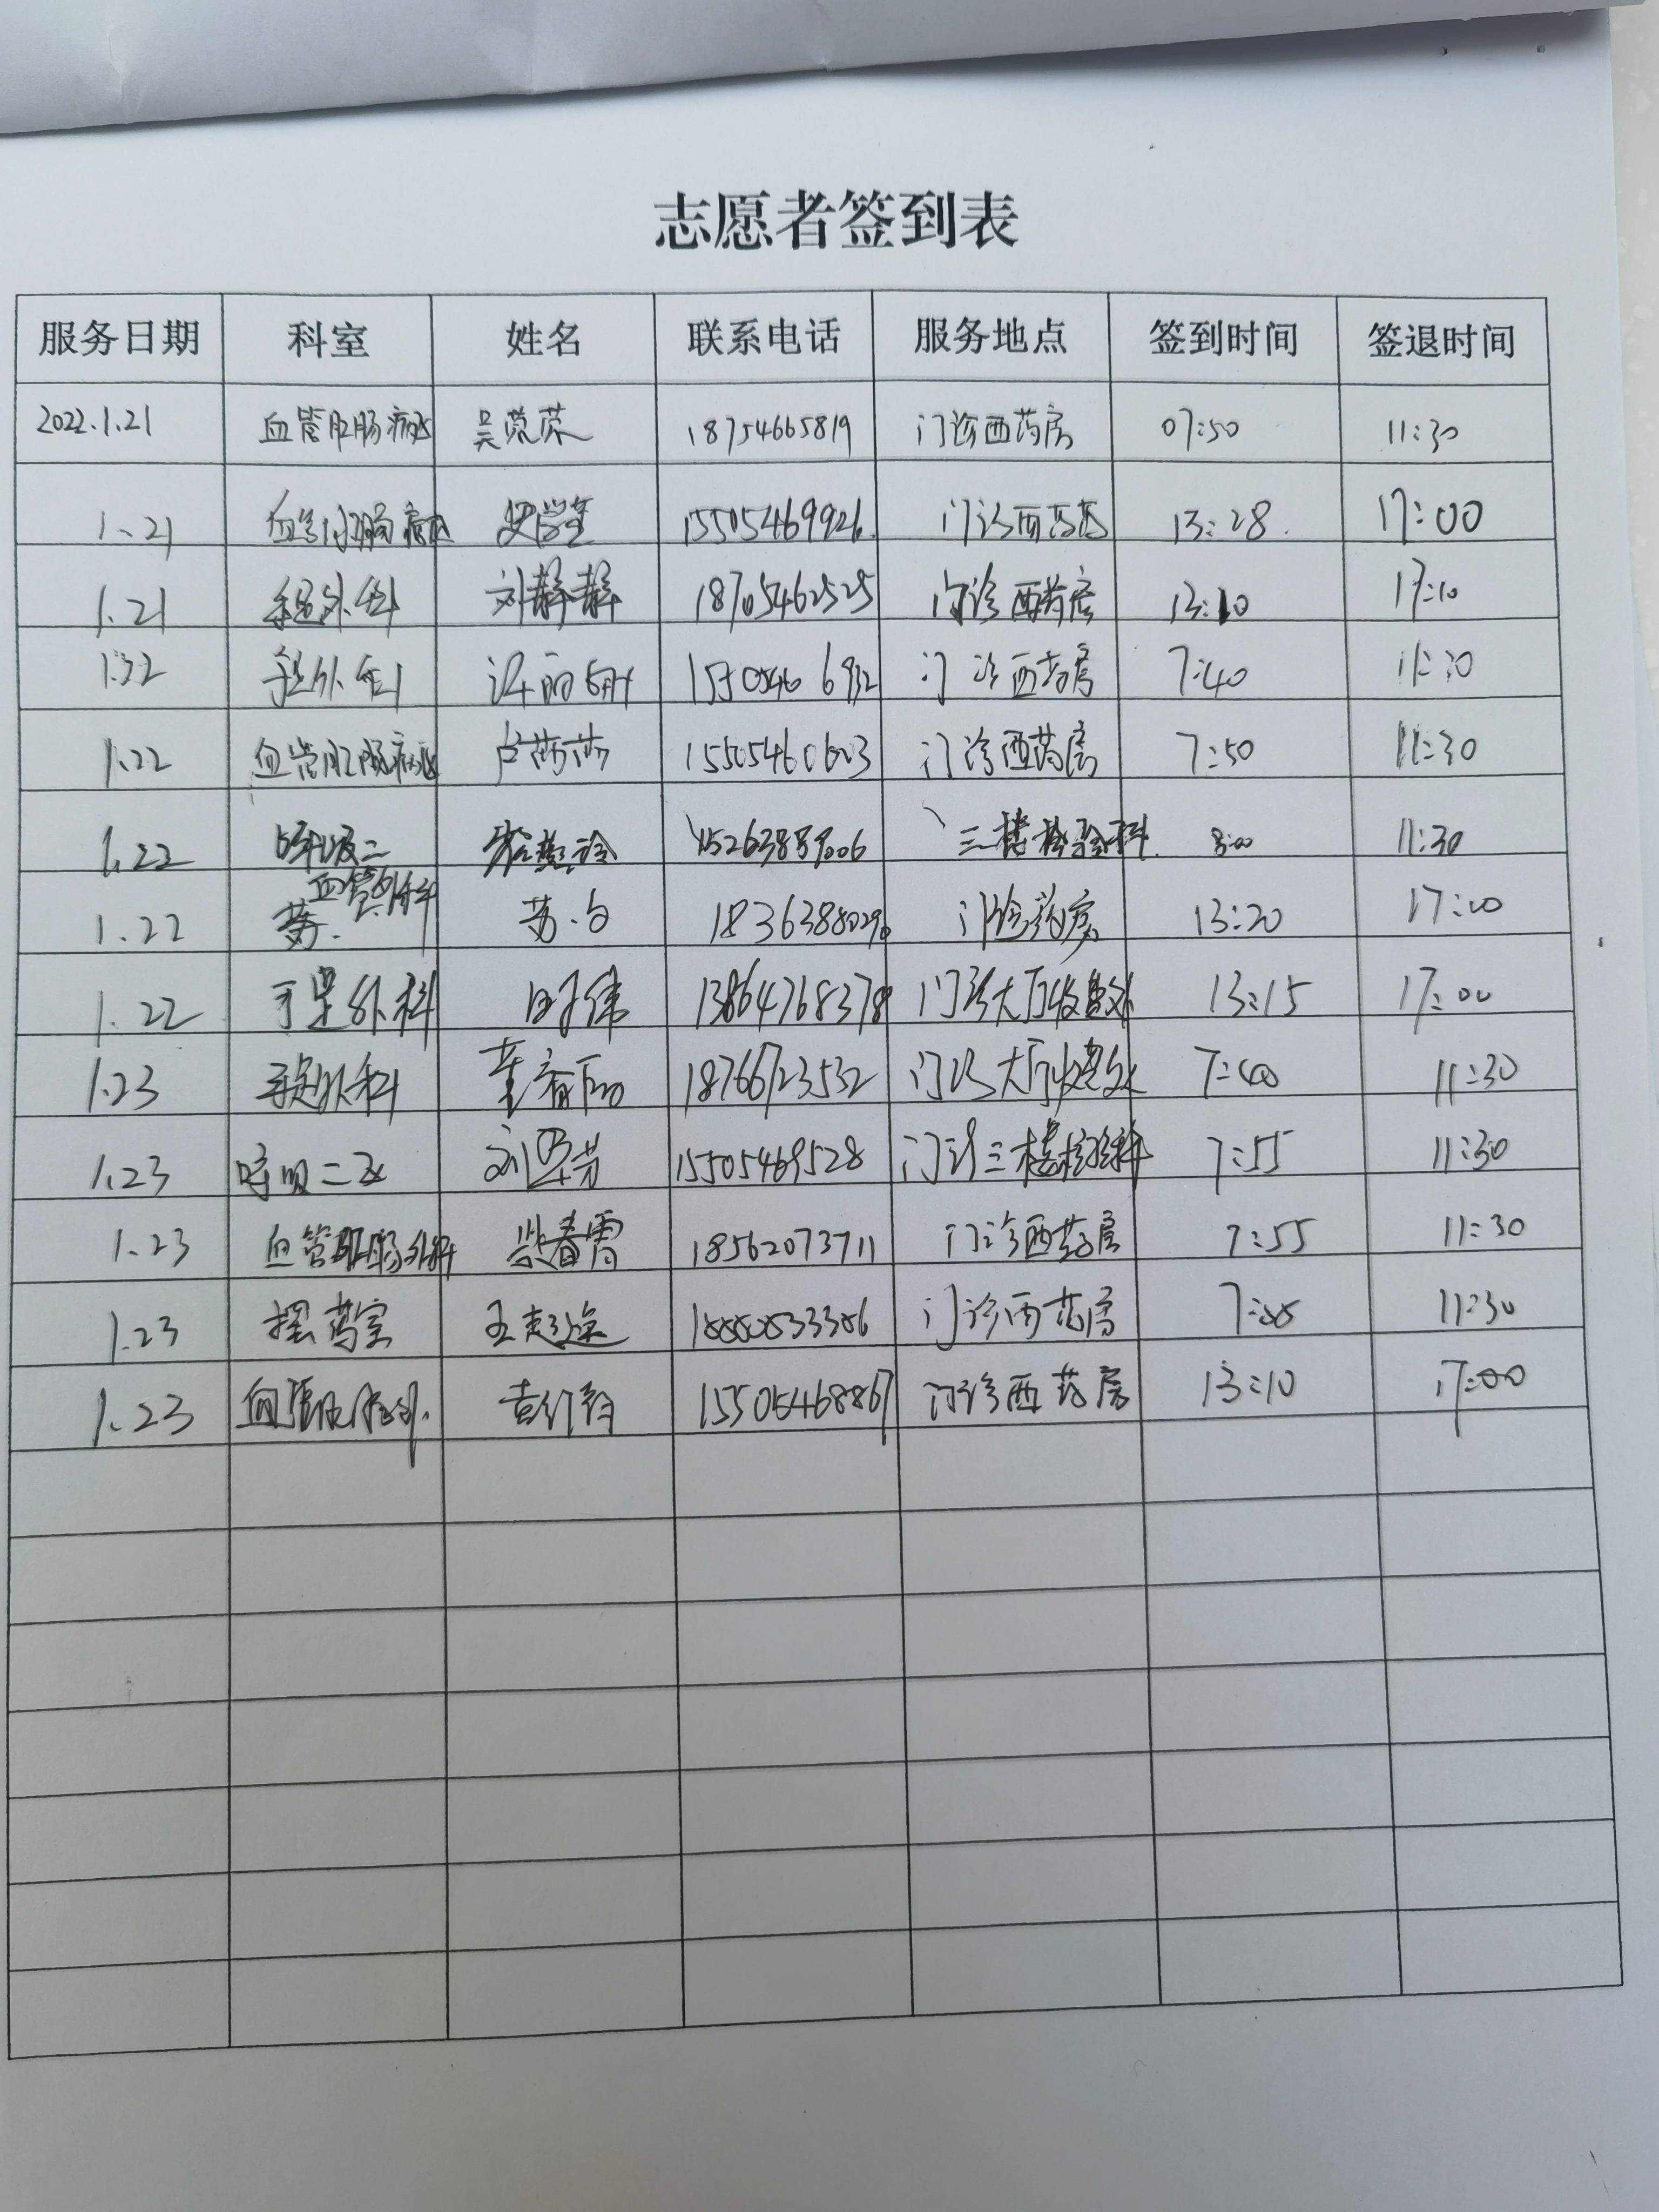 志愿者签到表
服务日期 科室 姓名 联系电话 服务地点 签到时间 签退时间
2022.1.21 血管肛肠病区 吴荣荣 18754665819 门诊西药房 07:50 11:30
1.21 15505469926 门诊西药房 13:28 17:00
1.21 手足外科 刘静静 18705462525 门诊西药房 13:10 17:10
1.22 手足外科 门诊西药房 7:40 11:30
1.22 血管肛肠病区 卢莎莎 15505460603 门诊西药房 7:50 11:30
1.22 15263889006 三楼检验科 8:00 11:30
1.22 血管外科 18363888029 门诊药房 13:20 17:00
1.22 手足外科 13864768378 门诊大厅收费处 13:15 17:00
1.23 手足外科 18766723532 门诊大厅收费处 7:40 11:30
1.23 呼吸二区 15505469528 门诊三楼检验科 7:55 11:30
1.23 血管肛肠外科 柴春霄 18562073711 门诊西药房 7:55 11:30
1.23 摆药室 门诊西药房 11:30
1.23 15505468867 门诊西药房 13:10 17:00